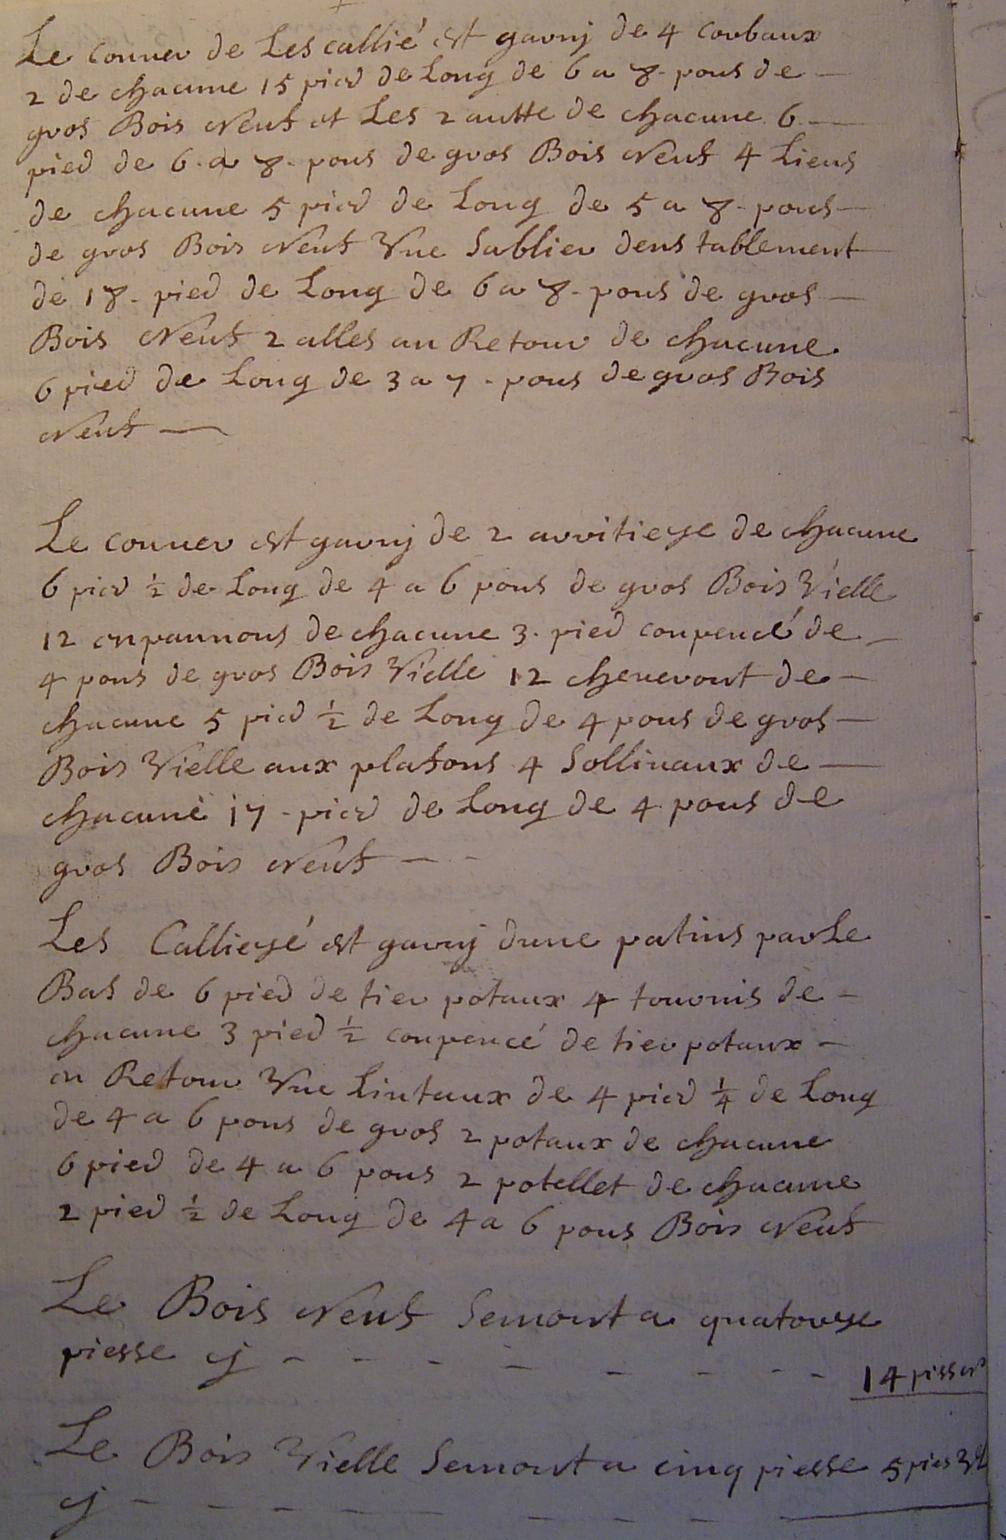 Le couver de Les callié est garnj de 4 corbaux
2 de chacune 15 pied de Long de 6 a 8 pous de
gros Bois neuf et Les 2 autte de chacune 6
pied de 6 a 8 pous de gros Bois neuf 4 Liens
de chacune 5 pied de Long de 5 a 8 pous
de gros Bois neuf Vne Sablier dens tablement
de 18 pied de Long de 6 a 8 pous de gros
Bois neuf 2 alles au Retour de chacune
6 pied de Long de 3 a 7 pous de gros Bois
neuf
Le couver est garnj de 2 arritieye de chacune
6 pied ½ de Long de 4 a 6 pous de gros Bois Vielle
12 enpannons de chacune 3 pied conpencé de
4 pous de gros Bois Vielle 12 cheveront de
chacune 5 pied ½ de Long de 4 pous de gros
Bois Vielle aux plafons 4 Sollivaux de
chacune 17 pied de Long de 4 pous de
gros Bois neuf
Les Callieyé est garnj dune patins par Le
Bas de 6 pied de tier potaux 4 tournis de
chacune 3 pied ½ conpencé de tier potaux
en Retour Vne Lintaux de 4 pied ¼ de Long
de 4 a 6 pous de gros 2 potaux de chacune
6 pied de 4 a 6 pous 2 potellet de chacune
2 pied ½ de Long de 4 a 6 pous Bois neuf
Le Bois neuf Semont a quatorye
piesse cj
14 piss
Le Bois Vielle Semont a cinq piesse 5 pies
cj